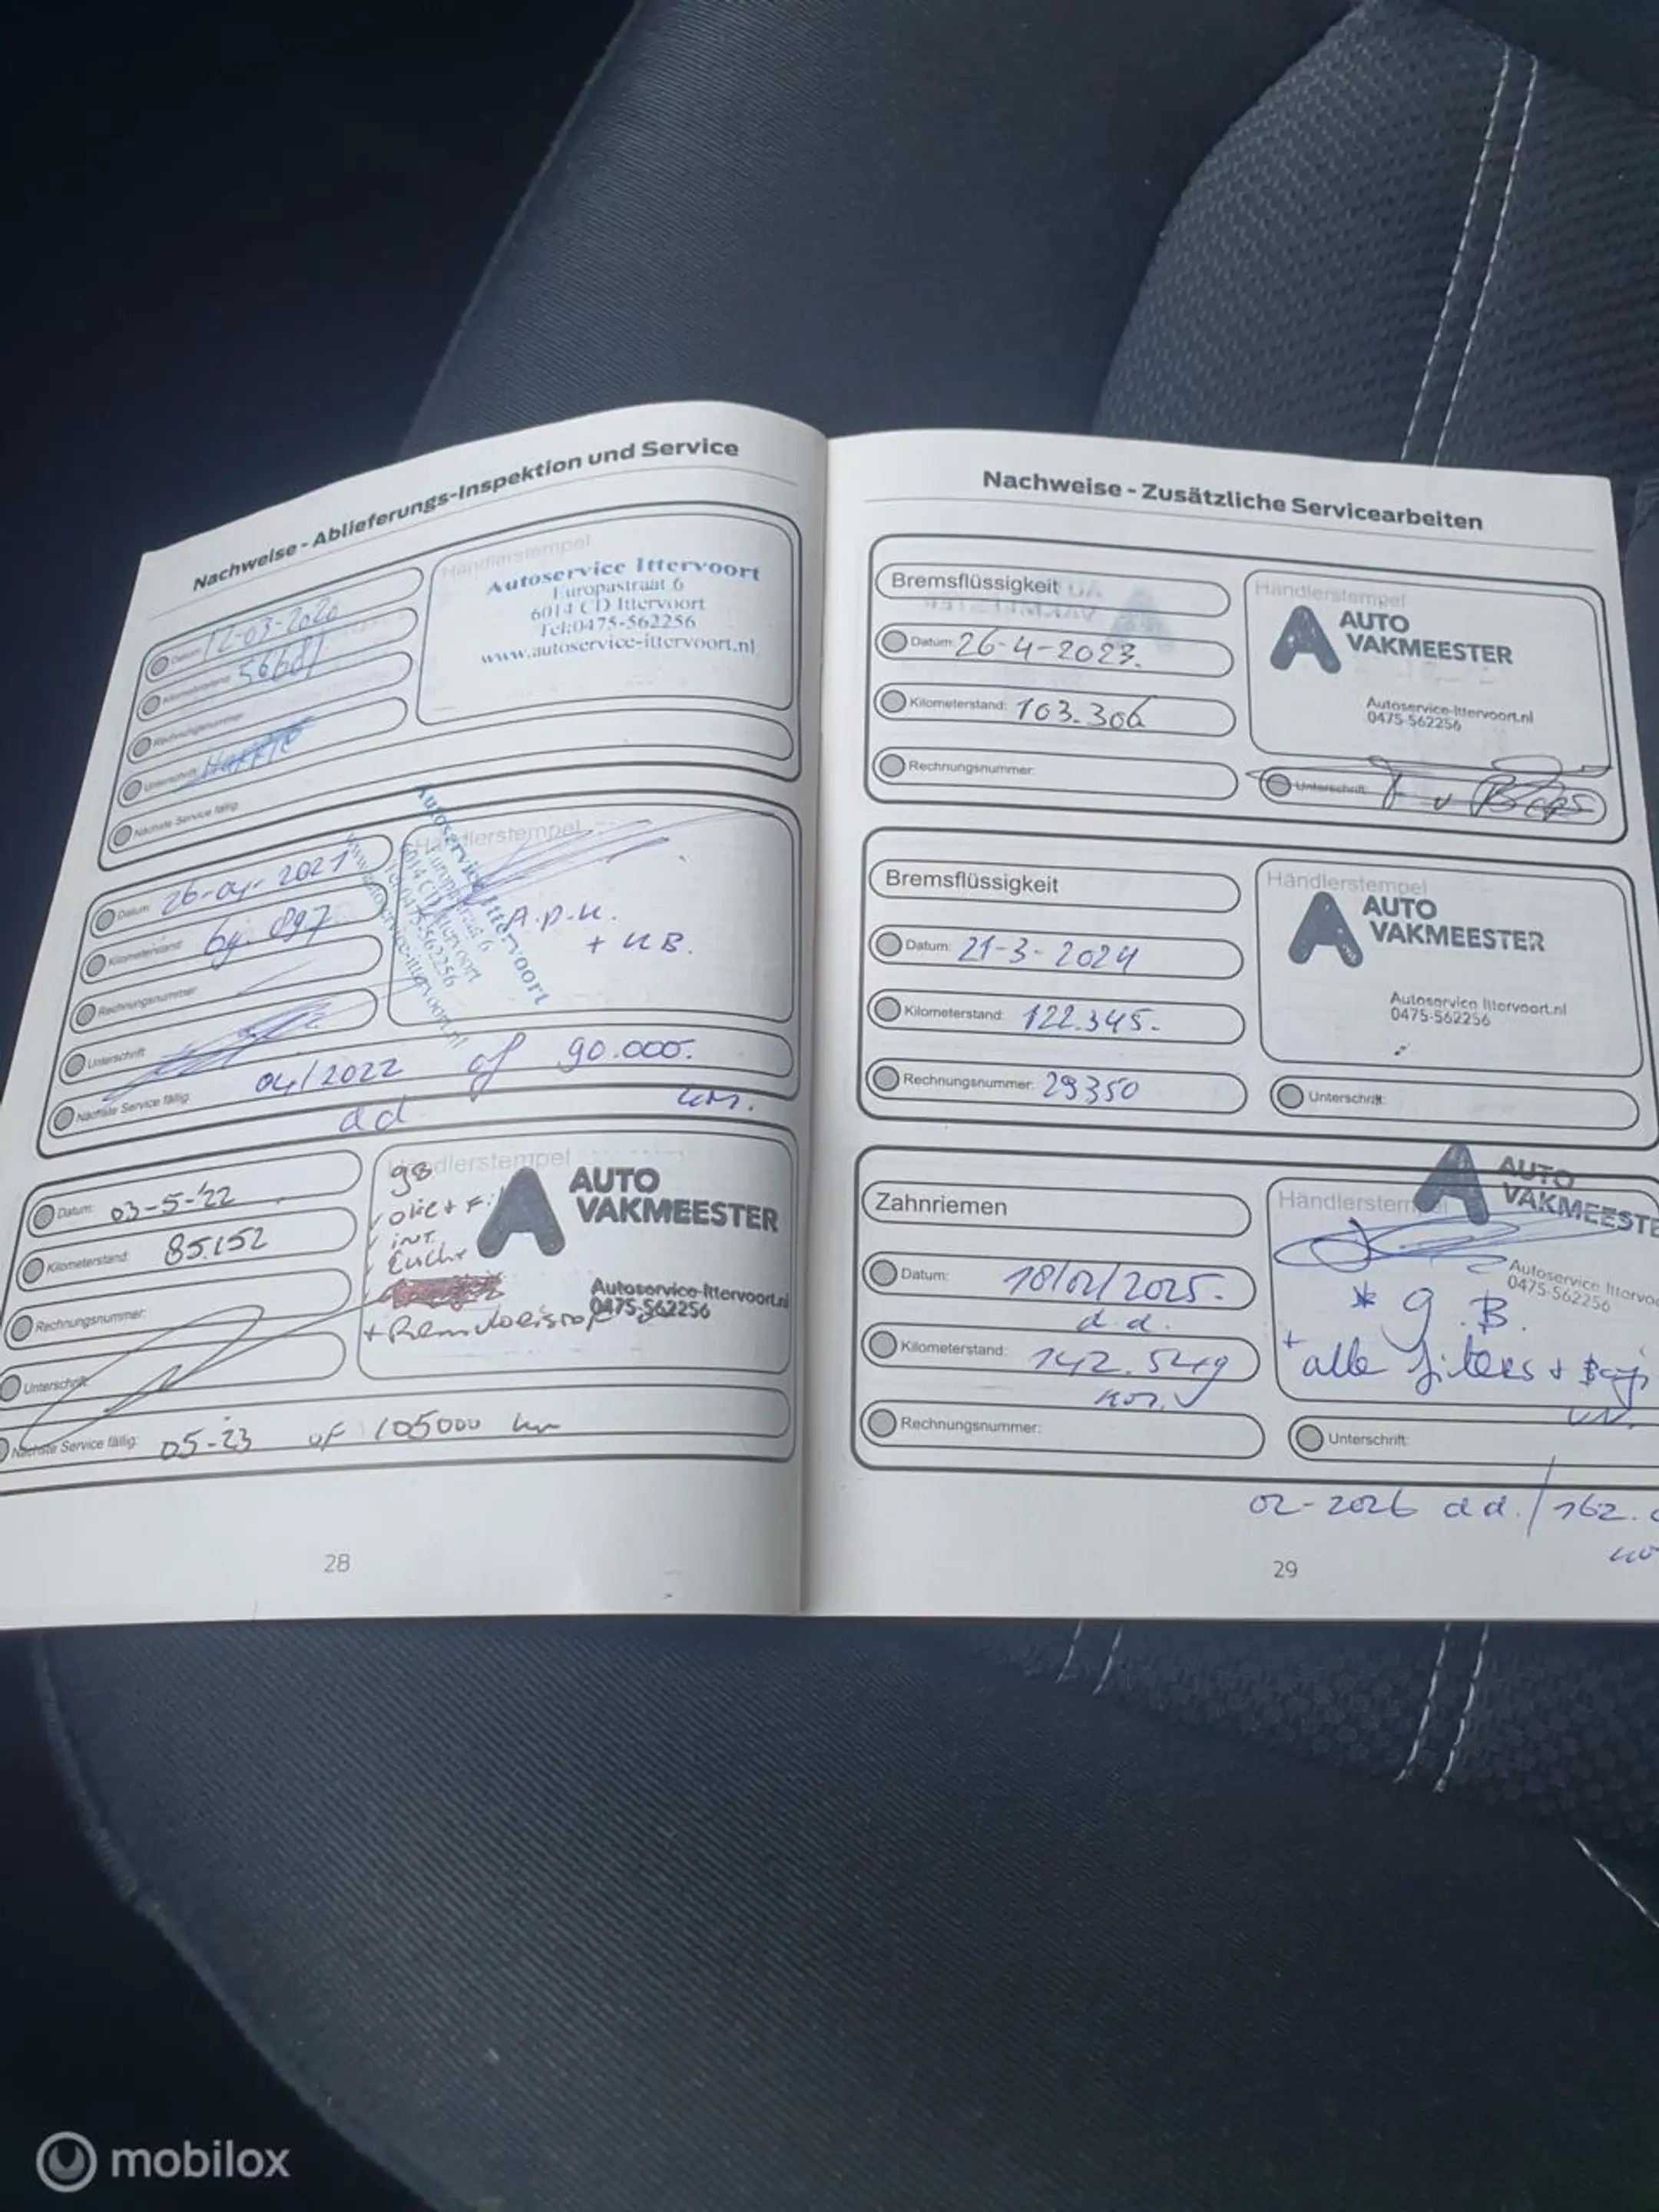 Nachweise - Ablieferungs-Inspektion und Service
Händlerstempel
Autoservice Ittervoort
Europastraat 6
6014 CD Ittervoort
Tel:0475-562256
www.autoservice-ittervoort.nl
Datum: 12-03-2020
Kilometerstand: 56681
Rechnungsnummer:
Unterschrift:
Nächste Service fällig:
Händlerstempel
Autoservice Ittervoort
Europastraat 6
6014 CD Ittervoort
Tel:0475-562256
www.autoservice-ittervoort.nl
A.P.K.
+ KB.
Datum: 26-04-2021
Kilometerstand: 69.897
Rechnungsnummer:
Unterschrift:
Nächste Service fällig: 04/2022 of 90.000.
dd km.
Händlerstempel
AUTO
VAKMEESTER
Autoservice-Ittervoort.nl
0475-562256
gB
olie + F.
int.
Lucht
+ Remvloeistof
Datum: 03-5-'22
Kilometerstand: 85.152
Rechnungsnummer:
Unterschrift:
Nächste Service fällig: 05-23 of 105000 km
28
Nachweise - Zusätzliche Servicearbeiten
Bremsflüssigkeit
Datum: 26-4-2023.
Kilometerstand: 103.306
Rechnungsnummer:
Händlerstempel
AUTO
VAKMEESTER
Autoservice-Ittervoort.nl
0475-562256
Unterschrift:
Bremsflüssigkeit
Datum: 21-3-2024
Kilometerstand: 122.345-
Rechnungsnummer: 29350
Händlerstempel
AUTO
VAKMEESTER
Autoservice Ittervoort.nl
0475-562256
Unterschrift:
Zahnriemen
Datum: 18/02/2025.
d.d.
Kilometerstand: 142.549
km.
Rechnungsnummer:
Händlerstempel
AUTO
VAKMEESTE
Autoservice Ittervoo
0475-562256
* g.B.
+ alle filters +
Unterschrift:
02-2026 dd. / 162.
29
mobilox